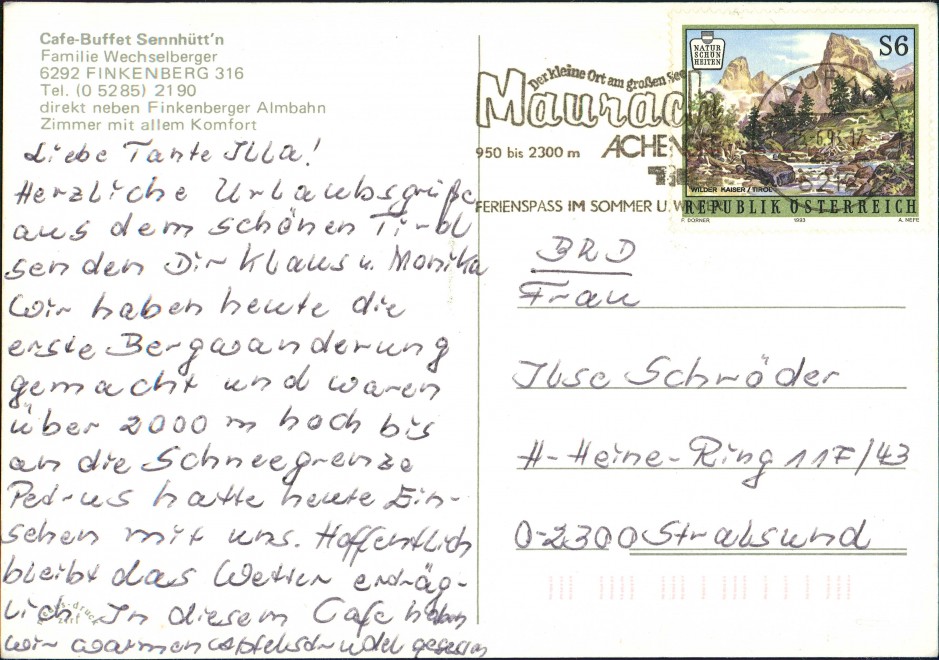 Cafe-Buffet Sennhütt'n
Familie Wechselberger
6292 FINKENBERG 316
Tel. (0 52 85) 21 90
direkt neben Finkenberger Almbahn
Zimmer mit allem Komfort
Liebe Tante Illa!
Herzliche Urlaubsgrüße
aus dem schönen Tirol
senden Dir Klaus u. Monika
Wir haben heute die
erste Bergwanderung
gemacht und waren
über 2000 m hoch bis
an die Schneegrenze
Petrus hatte heute Ein-
sehen mit uns. Hoffentlich
bleibt das Wetter erträg-
lich. In diesem Cafe haben
wir warmen Apfelstrudel gegessen
Der kleine Ort am großen See
Maurach
950 bis 2300 m
FERIENSPASS IM SOMMER U.
NATUR
SCHÖN
HEITEN
S6
WILDER KAISER / TIROL
REPUBLIK ÖSTERREICH
F. DORNER 1993 A. NEFE
BRD
Frau
Ilse Schröder
H-Heine-Ring 117/43
O-2300 Stralsund